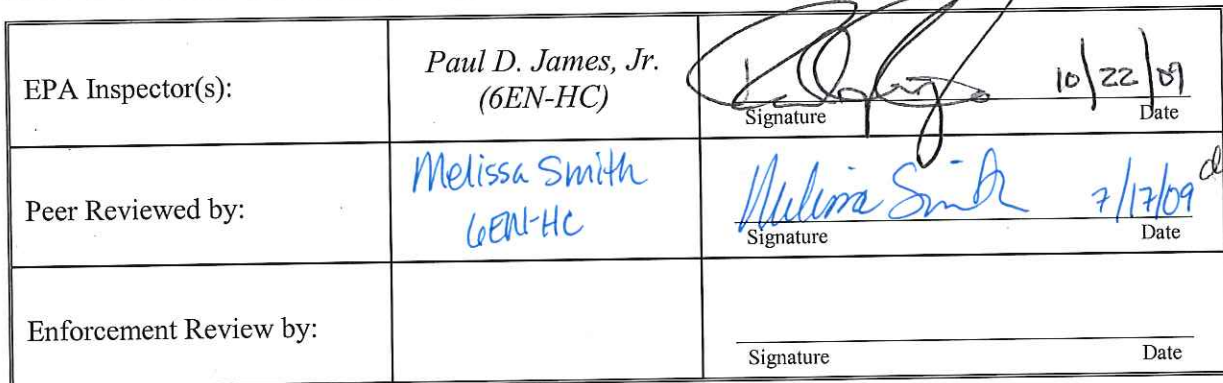 EPA Inspector(s):
Paul D. James, Jr.
(6EN-HC)
10/22/09
Signature
Date
Peer Reviewed by:
Melissa Smith
6EN-HC
Melissa Smith
7/17/09
Signature
Date
Enforcement Review by:
Signature
Date